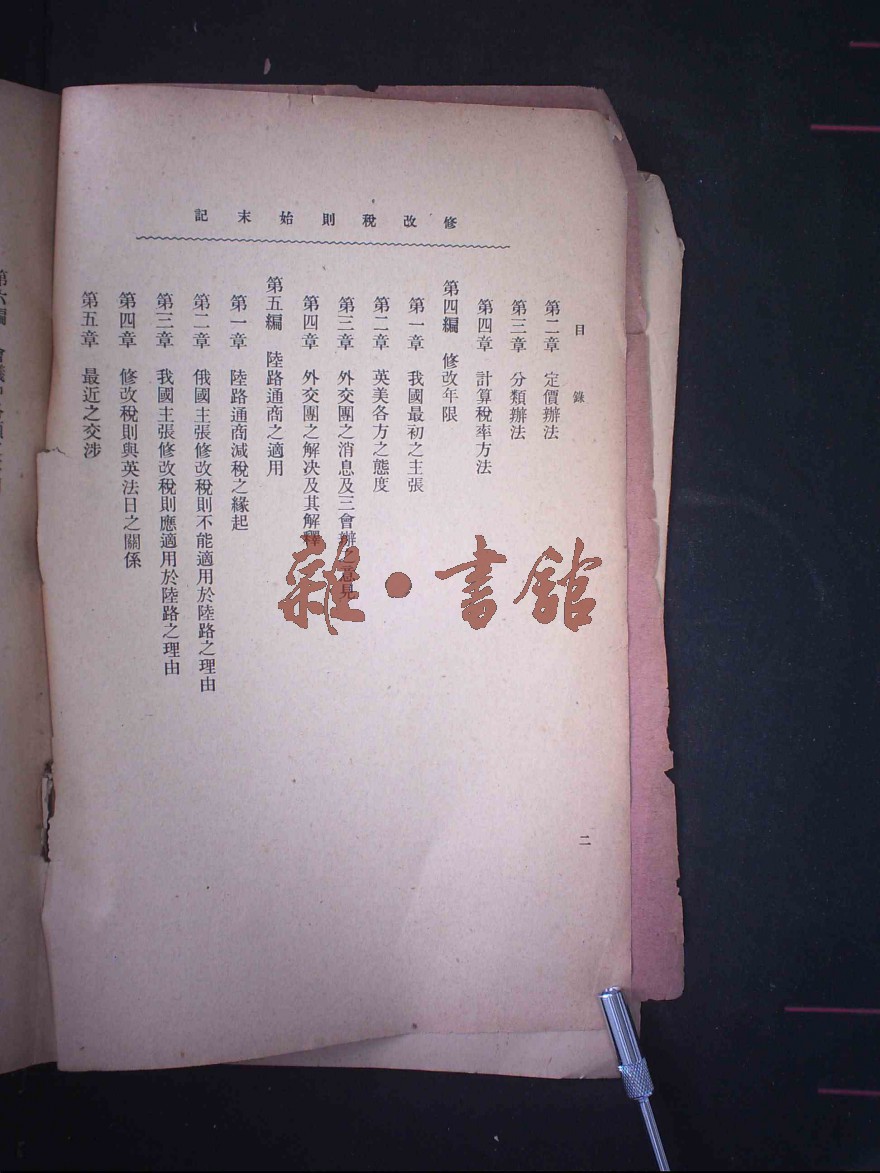 修改稅則始末記
目錄
二
第二章 定價辦法
第三章 分類辦法
第四章 計算稅率方法
第四編 修改年限
第一章 我國最初之主張
第二章 英美各方之態度
第三章 外交團之消息及三會辦之意見
第四章 外交團之解決及其解釋
第五編 陸路通商之適用
第一章 陸路通商減稅之緣起
第二章 俄國主張修改稅則不能適用於陸路之理由
第三章 我國主張修改稅則應適用於陸路之理由
第四章 修改稅則與英法日之關係
第五章 最近之交涉
第六編 會議
雜·書館